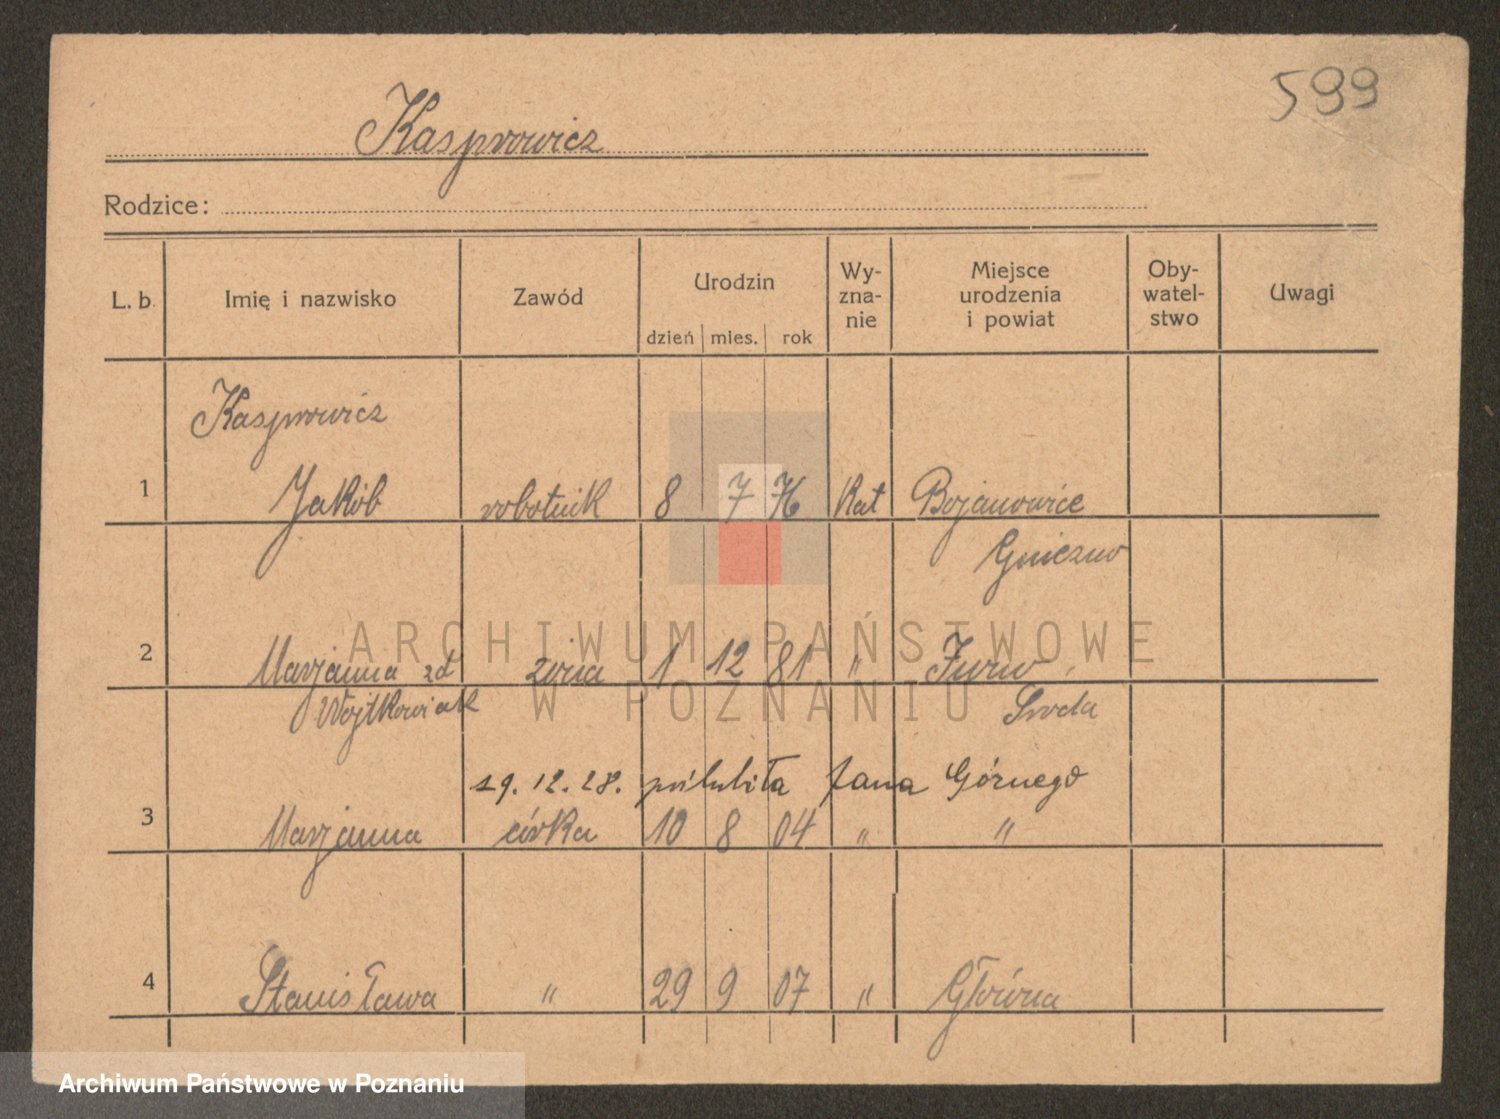 599
Kasprowicz
Rodzice:
L. b. Imię i nazwisko Zawód Urodzin dzień mies. rok Wy-zna-nie Miejsce urodzenia i powiat Oby-watel-stwo Uwagi
Kasprowicz
1 Jakób robotnik 8 7 76 Kat Bojanowice
Gniezno
2 Marjanna zd żona 1 12 81 "
Wojtkowiak Środa
19.12.28. poślubiła Jana Górnego
3 Marjanna córka 10 8 04 " "
4 Stanisława " 29 9 07 " Główna
ARCHIWUM PAŃSTWOWE
W POZNANIU
Archiwum Państwowe w Poznaniu